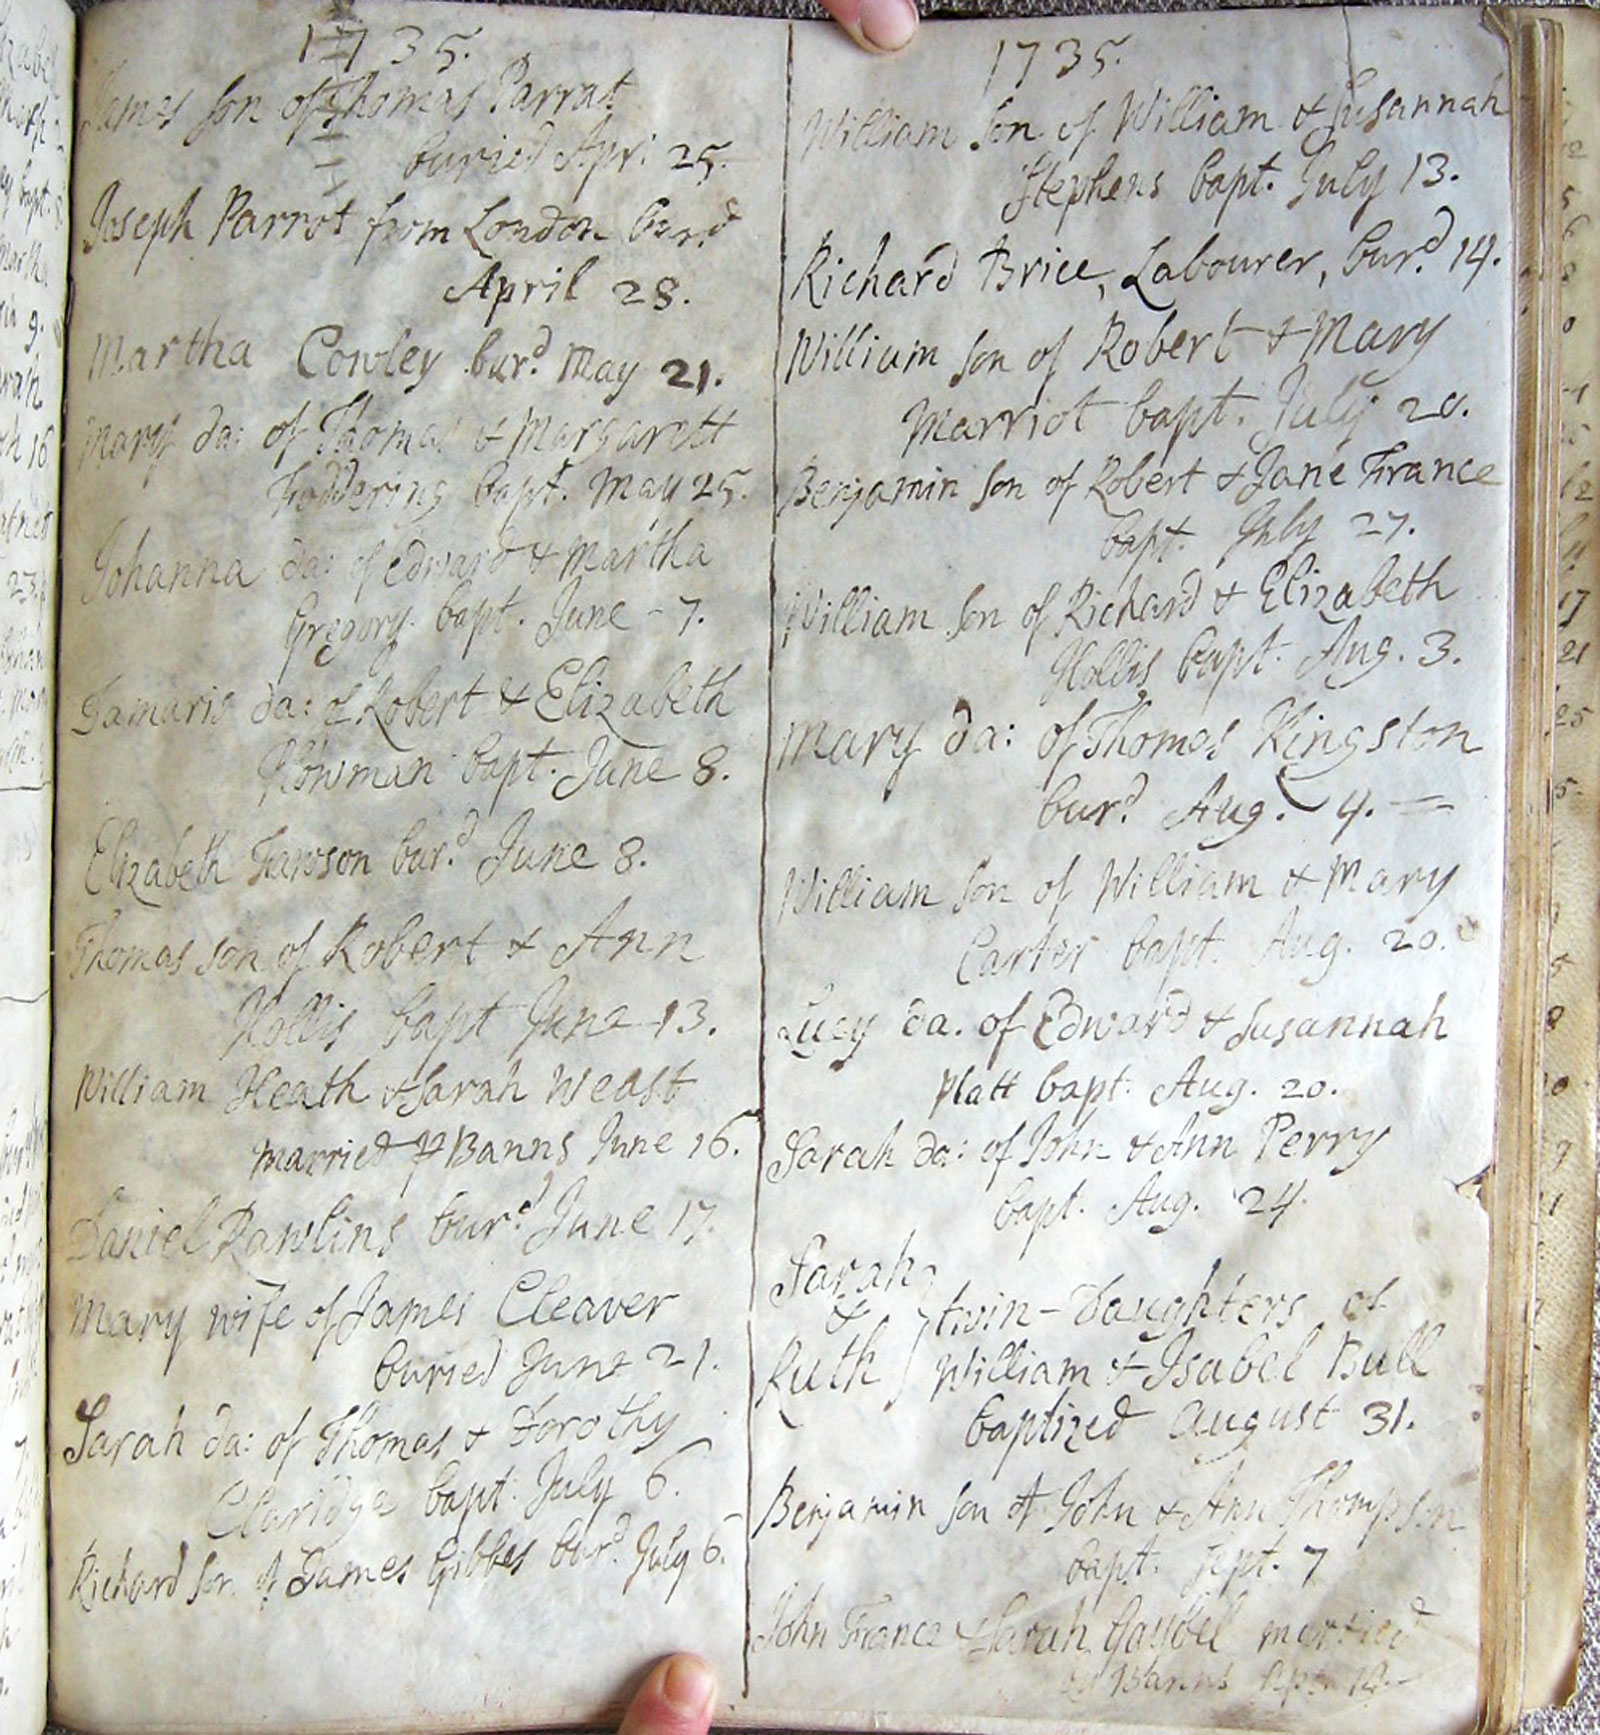 1735.
James son of Thomas Parrat
buried Apr: 25.
Joseph Parrot from London bur.d
April 28.
Martha Cowley bur.d May 21.
Mary da: of Thomas & Margarett
bapt. May 25.
Johanna da: of Edward & Martha
Gregory bapt. June - 7.
Damaris da: of Robert & Elizabeth
Plowman bapt. June 8.
Elizabeth bur.d June 8.
Thomas son of Robert & Ann
Hollis bapt June 13.
William Heath & Sarah Weast
married p Banns June 16.
Daniel Rawlins bur.d June 17.
Mary wife of James Cleaver
buried June 21.
Sarah da: of Thomas & Dorothy
Claridge bapt. July 6.
Richard son of James Gibbes bur.d July 6.
1735.
William son of William & Susannah
Stephens bapt. July 13.
Richard Brice, Labourer, bur.d 14.
William son of Robert & Mary
Marriot bapt. July 20.
Benjamin son of Robert & Jane France
bapt. July 27.
William son of Richard & Elizabeth
Hollis bapt. Aug. 3.
Mary da: of Thomas Kingston
bur.d Aug. 4. =
William son of William & Mary
Carter bapt. Aug. 20.
Lucy da. of Edward & Susannah
Platt bapt. Aug. 20.
Sarah da: of John & Ann Perry
bapt. Aug. 24.
Sarah
& } twin-Daughters of
Ruth } William & Isabel Bull
baptized August 31.
Benjamin son of John & Ann Thompson
bapt. Sept. 7
John France & Sarah married
Banns